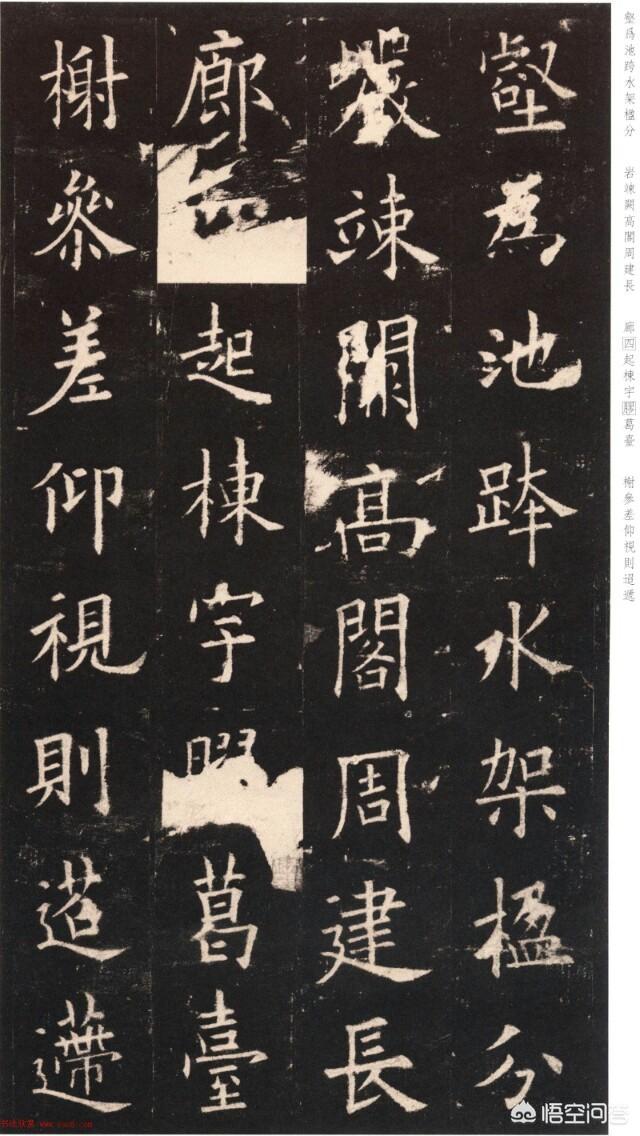 壑爲池跨水架楹分 岩竦闕高閣周建長 廊四起棟宇膠葛臺 榭參差仰視則迢遞
壑為池跨水架楹分
巖竦闕高閣周建長
廊起棟宇葛臺
榭參差仰視則迢遰
书法欣赏
悟空问答